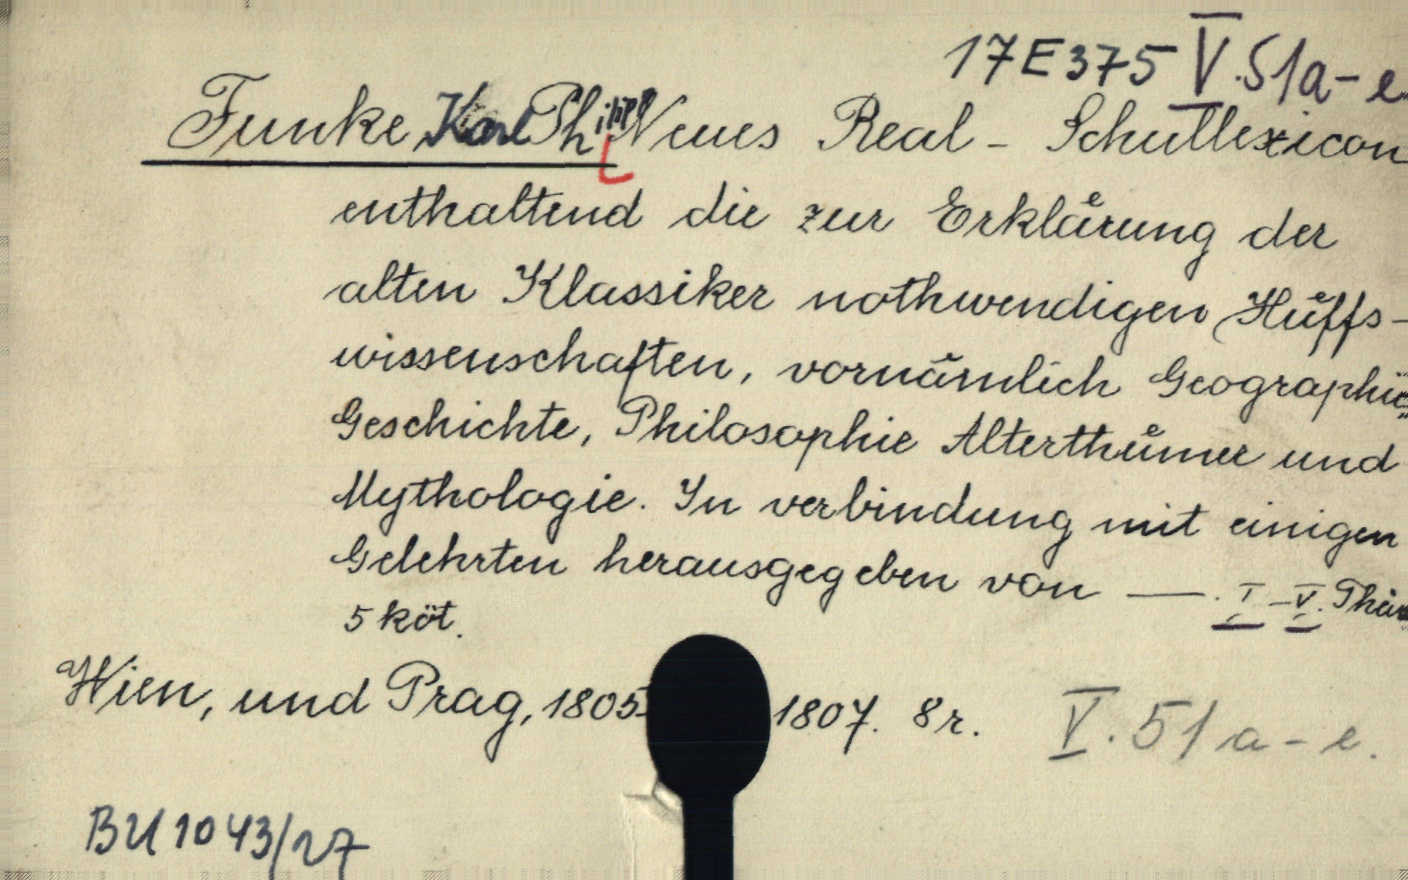 17E375 V.51a-e.
Funke Karl Philipp Neues Real - Schullexicon
enthaltend die zur Erklärung der
alten Klassiker nothwendigen Hülfs-
wissenschaften, vornämlich Geographie,
Geschichte, Philosophie Alterthümer und
Mythologie. In verbindung mit einigen
Gelehrten herausgegeben von —. I-V.
5 köt.
Wien, und Prag, 1805 1807. 8r. V.51a-e.
BU1043/27